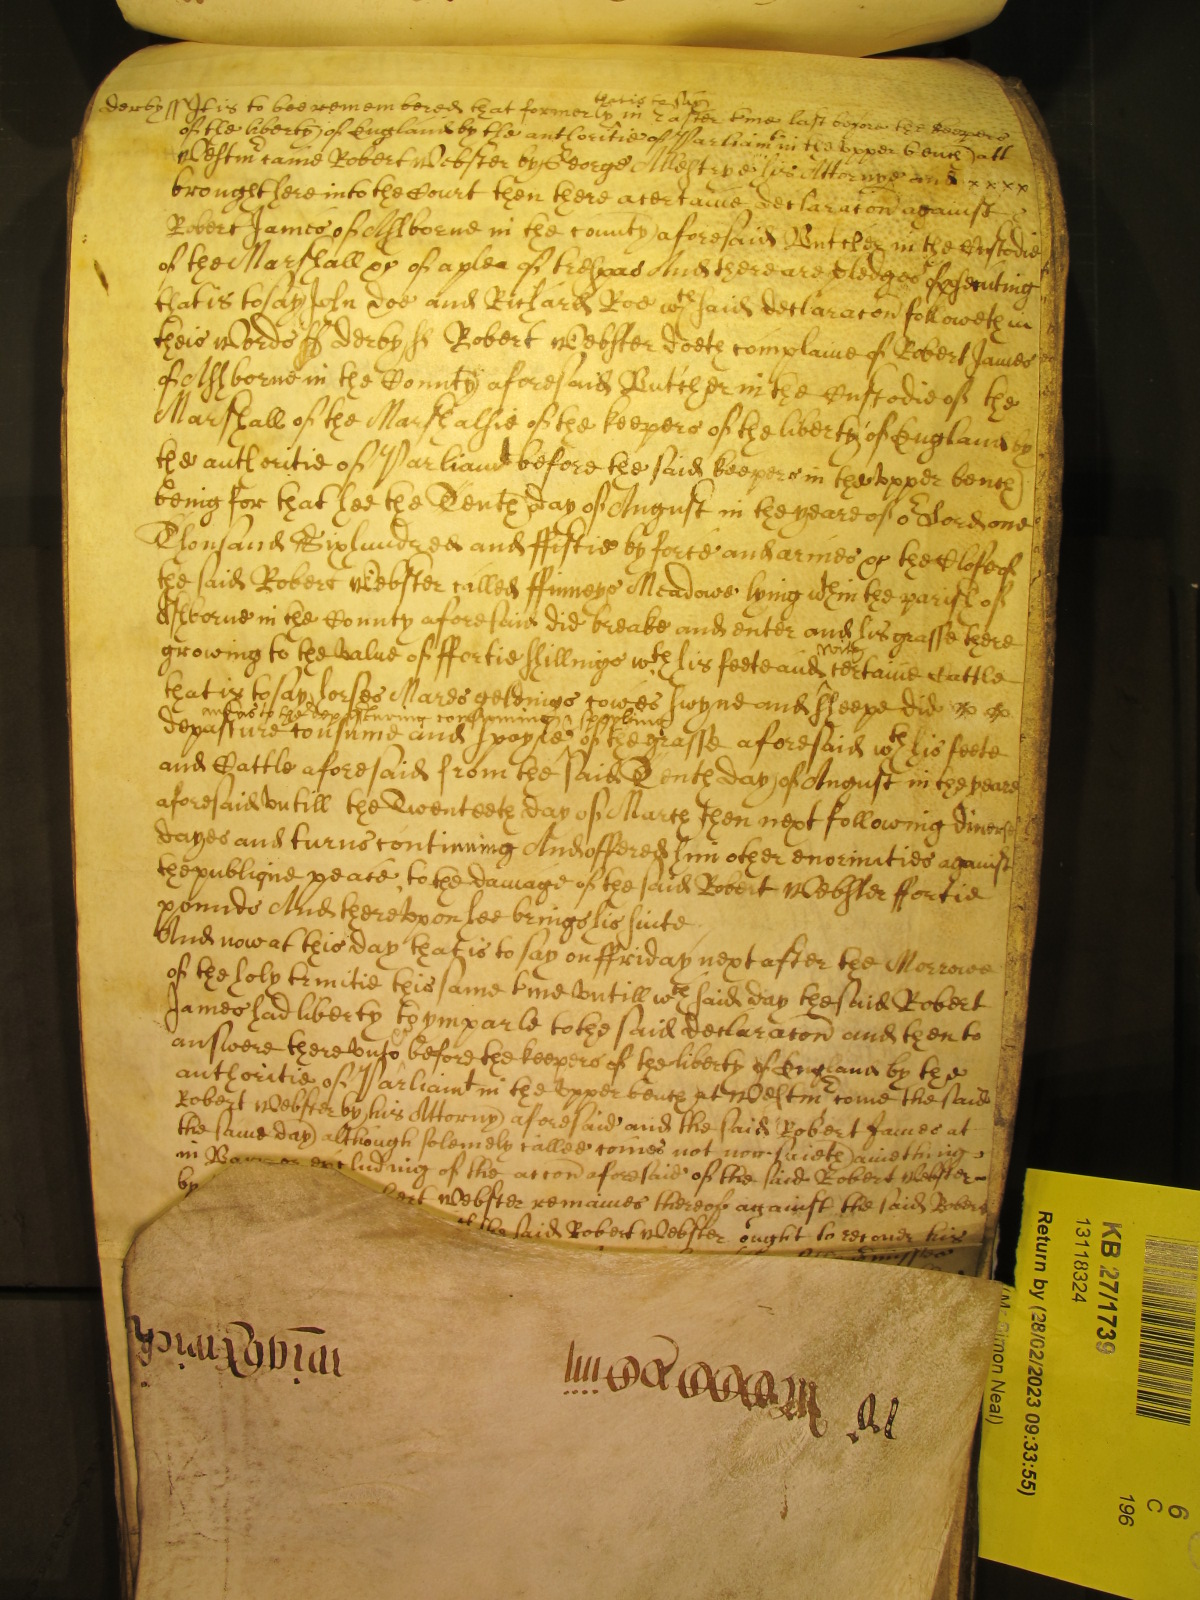 derby ss It is to bee remembered that formerly that is to say in Easter tme last before the keepers
of the liberty of England by the authoritie of Parliamt in the upper bench att
Westmr came Robert Webster by George Mestrye his Attorney and x x x x
brought here into the Court then there a certaine declaracon against
Robert James of Ashborne in the county aforesaid Butcher in the Custodie
of the Marshall &c of a plea of trespas And there are pledges of psecuting
that is to say John Doe and Richard Roe wch said declaracon followeth in
theis words ss derby ss Robert Webster doeth complaine of Robert James
of Ashborne in the County aforesaid Butcher in the Custodie of the
Marshall of the Marshalsie of the keepers of the liberty of England by
the authoritie of Parliamt before the said keepers in the upper bench
being for that hee the Tenth day of August in the yeare of or Lord one
Thousand Sixhundred and ffiftie by force and armes &c the Close of
the said Robert Webster called ffinneys Meadowe lying wthin the parish of
Ashborne in the County aforesaid did breake and enter and his grasse there
growing to the value of ffortie shillings wth his feete and wth certaine cattle
that is to say horses Mares geldings cowes swyne and sheepe did &c &c
depasture consume and spoyle and as to the depasturing consuming & spoyling of the grasse aforesaid wth his feete
and Cattle aforesaid from the said Tenth day of August in the yeare
aforesaid untill the Twenteeth day of March then next following diverse
dayes and turns continuing And offered him other enormities against
the publique peace to the damage of the said Robert Webster ffortie
pounds And thereupon hee brings his suite
And now at this day that is to say on ffriday next after the Morrowe
of the holy trinitie this same tme untill wch said day the said Robert
James had liberty to ymparle to the said declaracon and then to
answere thereunto &c before the keepers of the liberty of England by the
authoritie of Parliamt in the upper bench at Westmr come the said
Robert Webster by his Attorny aforesaid and the said Robert James at
the same day although solemnly called comes not nor saieth anie thing
in Barr or precluding of the accon aforesaid of the said Robert Webster
by bert Webster remaines thereof against the said Robert
the said Robert Webster ought to recover his
KB 27/1739
13118324
Return by (28/02/2023 09:33:55)
(Mr Simon Neal)
6
C
196